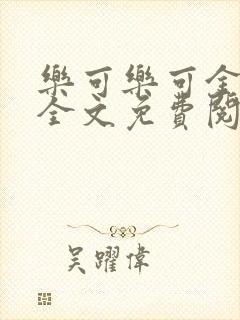 樂可樂可全
全文免費閱
吴躍偉